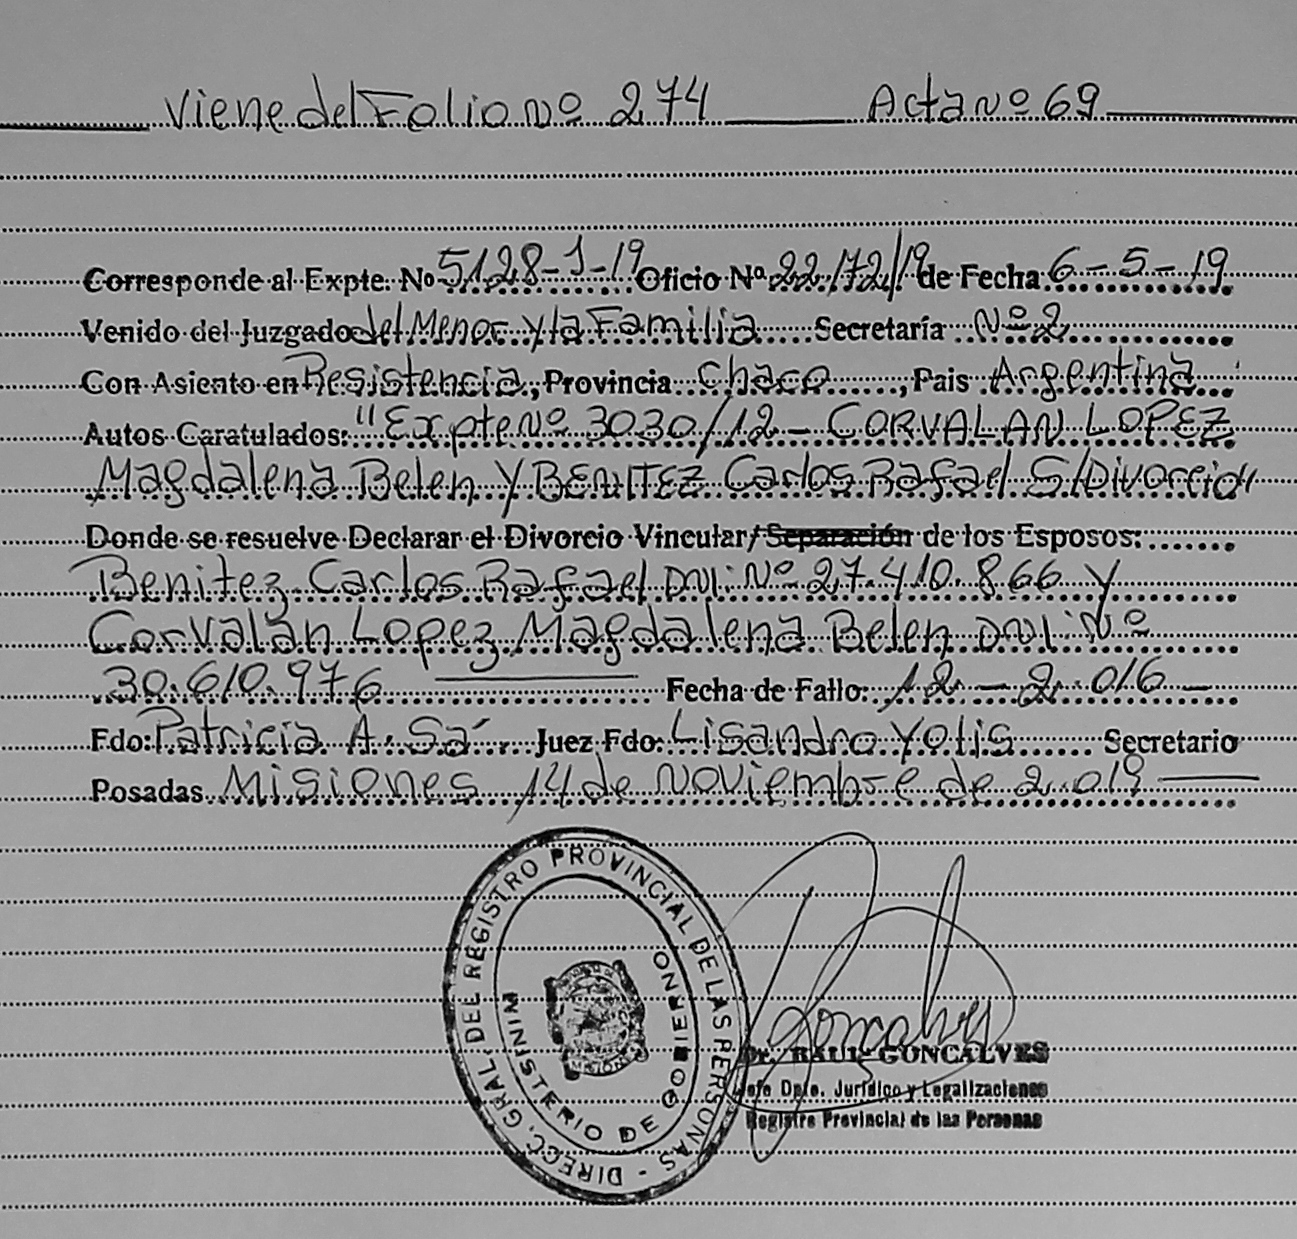 Viene del Folio Nº 274 Acta Nº 69
Corresponde al Expte. Nº 5128-J-19 Oficio Nº 2272/19 de Fecha 6-5-19
Venido del Juzgado del Menor y la Familia Secretaría Nº 2
Con Asiento en Resistencia, Provincia Chaco, Pais Argentina
Autos Caratulados: "Expte Nº 3030/12 - CORVALAN LOPEZ
Magdalena Belen Y BENITEZ Carlos Rafael S/Divorcio"
Donde se resuelve Declarar el Divorcio Vincular/Separación de los Esposos:
Benitez Carlos Rafael DNI: Nº 27.410.866 Y
Corvalán Lopez Magdalena Belen DNI: Nº
30.610.976 Fecha de Fallo: 12 - 2.016
Fdo: Patricia A. Sá Juez Fdo: Lisandro Yolis Secretario
Posadas Misiones 14 de Noviembre de 2.019
DIRECC. GRAL. DEL REGISTRO PROVINCIAL DE LAS PERSONAS -
MINISTERIO DE GOBIERNO
Dr. RAUL GONCALVES
Jefe Dpto. Jurídico y Legalizaciones
Registro Provincial de las Personas